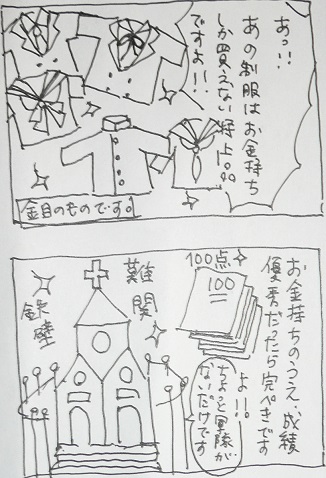 あっ!!
あの制服はお金持ち
しか買えない特上品
ですよ!!
金目のものです。
お金持ちのうえ、成績
優秀だったら完ぺきです
よ!!
100点
100
ちょっと冒険が
ないだけです
難関
鉄壁